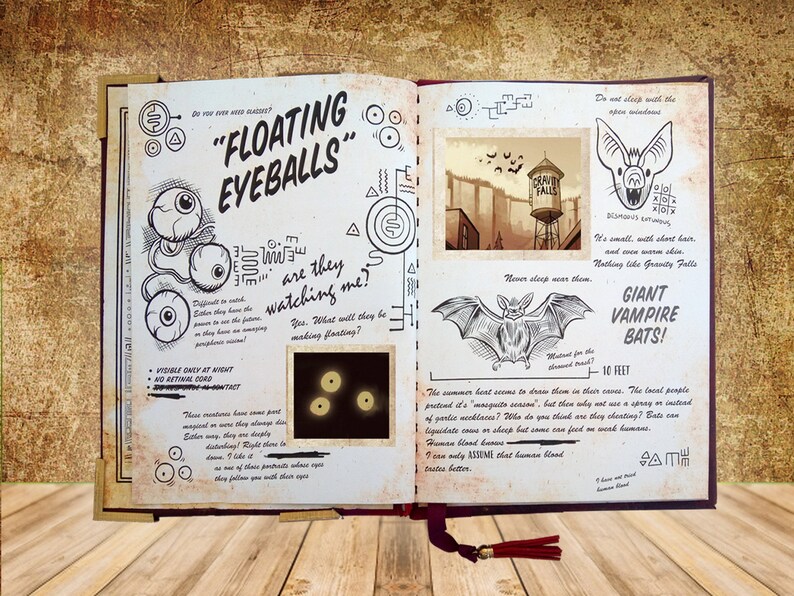 Do you ever need glasses?
"FLOATING
EYEBALLS"
are they
watching me?
Difficult to catch.
Either they have the
power to see the future,
or they have an amazing
peripheric vision!
Yes. What will they be
making floating?
• VISIBLE ONLY AT NIGHT
• NO RETINAL CORD
CONTACT
These creatures have some part
magical or were they always dis
Either way, they are deeply
disturbing! Right there lo
down, I like it
as one of those portraits whose eyes
they follow you with their eyes
Do not sleep with the
open windows
GRAVITY
FALLS
DESMODUS ROTUNDUS
It's small, with short hair,
and even warm skin.
Nothing like Gravity Falls
Never sleep near them.
GIANT
VAMPIRE
BATS!
Mutant for the
throwed trash?
10 FEET
The summer heat seems to draw them in their caves. The local people
pretend it's "mosquito season", but then why not use a spray or instead
of garlic necklaces? Who do you think are they cheating? Bats can
liquidate cows or sheep but some can feed on weak humans.
Human blood knows
I can only ASSUME that human blood
tastes better.
I have not tried
human blood